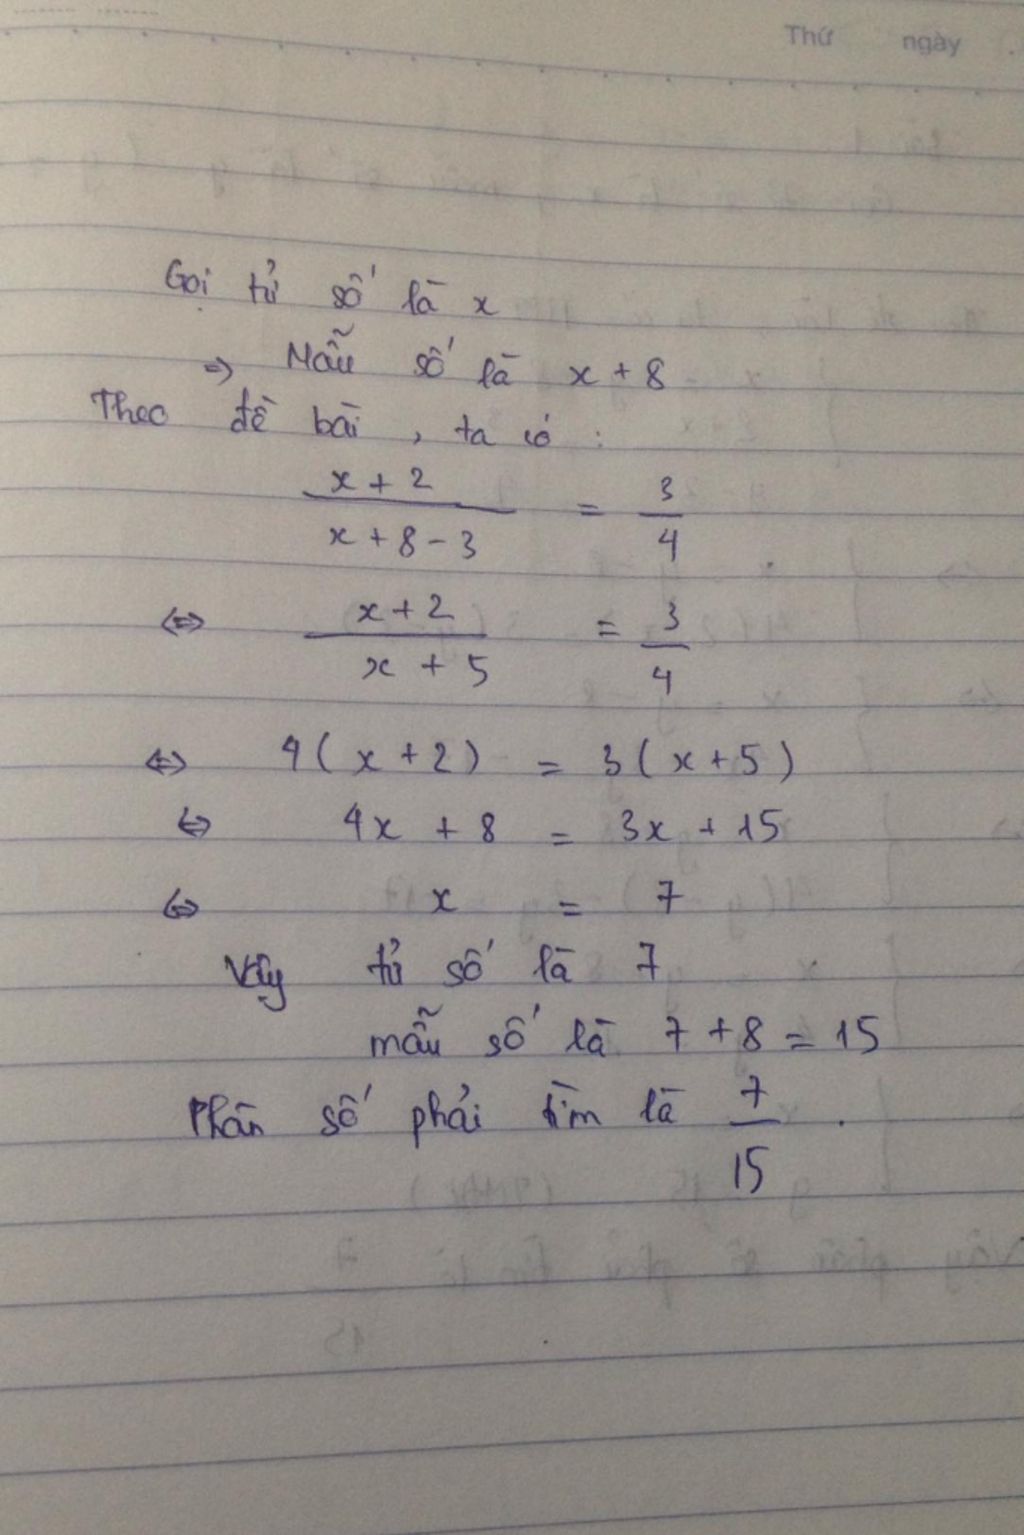 Thứ ngày
Gọi tử số là x
⇒ Mẫu số là x + 8
Theo đề bài, ta có :
x + 2 / x + 8 - 3 = 3 / 4
⇔ x + 2 / x + 5 = 3 / 4
⇔ 4 ( x + 2 ) = 3 ( x + 5 )
⇔ 4x + 8 = 3x + 15
⇔ x = 7
Vậy tử số là 7
mẫu số là 7 + 8 = 15
Phân số phải tìm là 7 / 15 .